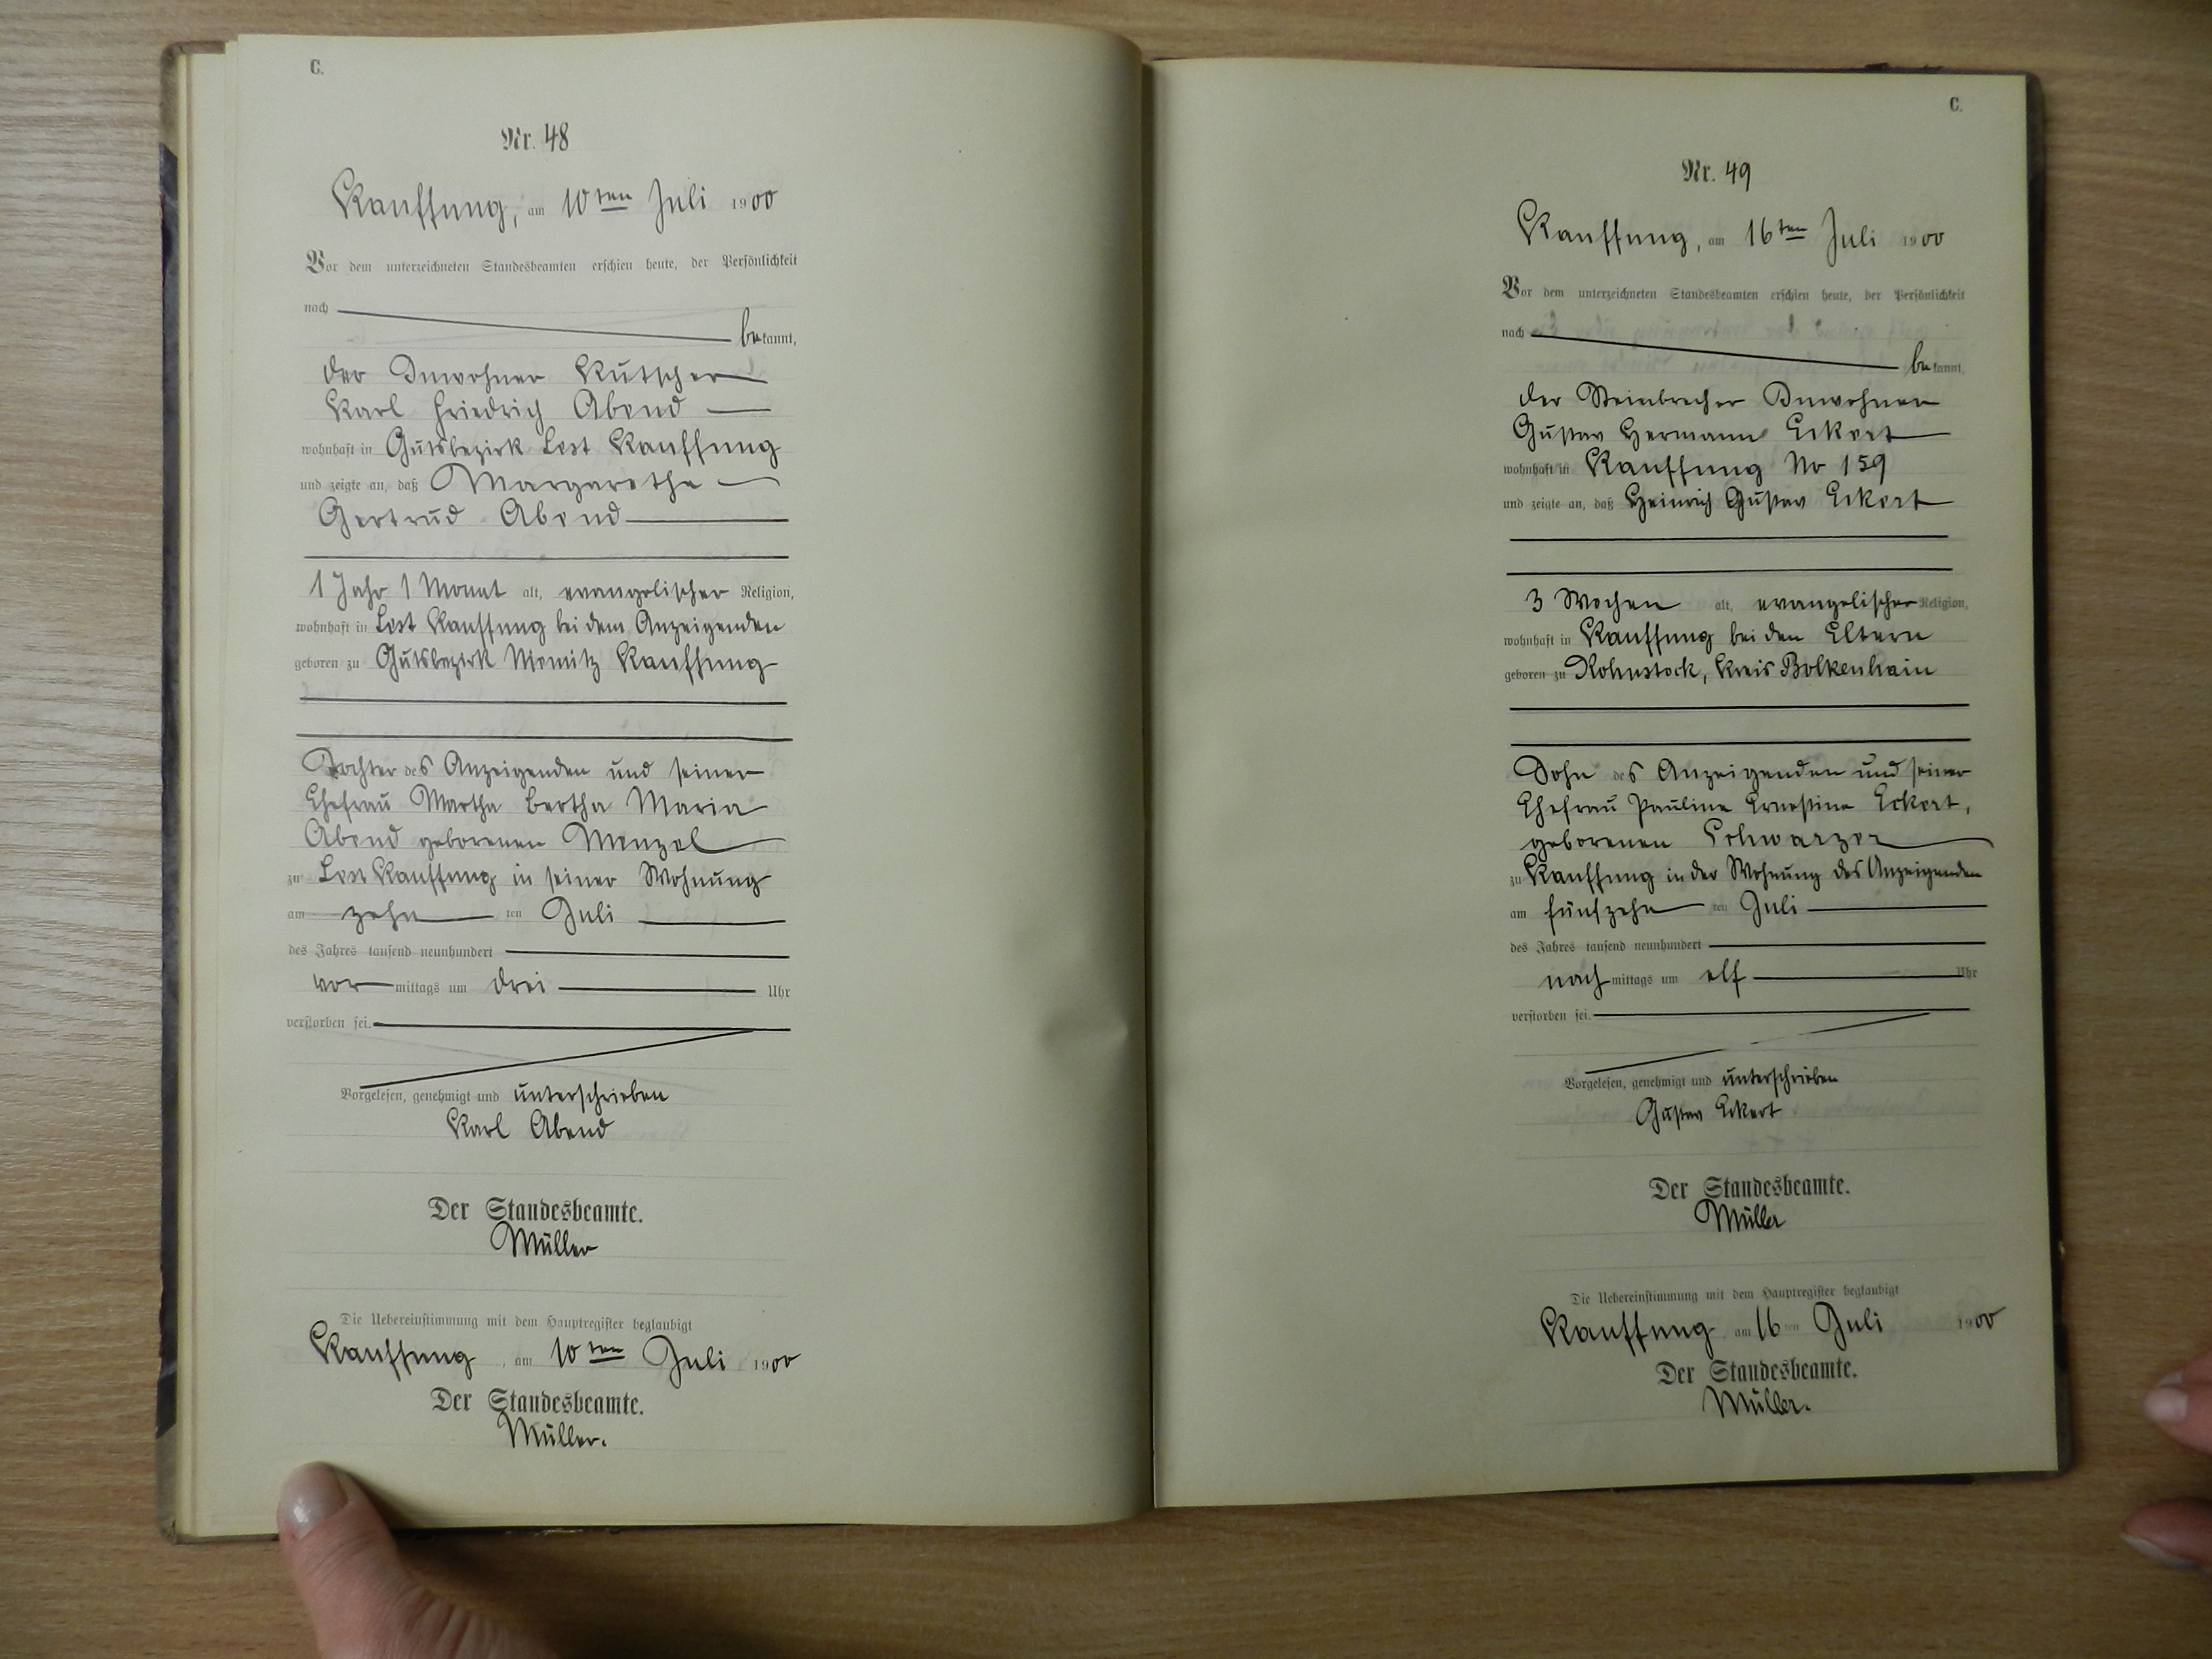 C.
Nr. 48
Kauffung, am 10ten Juli 1900
Vor dem unterzeichneten Standesbeamten erschien heute, der Persönlichkeit
nach
bekannt,
der Inwohner Kutscher
Karl Friedrich Abend
wohnhaft in Gutsbezirk Lest Kauffung
und zeigte an, daß Margarethe
Gertrud Abend
1 Jahr 1 Monat alt, evangelischer Religion,
wohnhaft in Lest Kauffung bei dem Anzeigenden
geboren zu Gutsbezirk Niemitz Kauffung
Tochter des Anzeigenden und seiner
Ehefrau Martha Bertha Maria
Abend geborenen Menzel
zu Lest Kauffung in seiner Wohnung
am zehnten Juli
des Jahres tausend neunhundert
vormittags um drei Uhr
verstorben sei.
Vorgelesen, genehmigt und unterschrieben
Karl Abend
Der Standesbeamte.
Müller
Die Uebereinstimmung mit dem Hauptregister beglaubigt
Kauffung, am 10ten Juli 1900
Der Standesbeamte.
Müller.
C.
Nr. 49
Kauffung, am 16ten Juli 1900
Vor dem unterzeichneten Standesbeamten erschien heute, der Persönlichkeit
nach
bekannt,
der Steinbrecher Inwohner
Gustav Hermann Eckert
wohnhaft in Kauffung No 159
und zeigte an, daß Heinrich Gustav Eckert
3 Wochen alt, evangelischer Religion,
wohnhaft in Kauffung bei den Eltern
geboren zu Rohnstock, Kreis Bolkenhain
Sohn des Anzeigenden und seiner
Ehefrau Pauline Ernestine Eckert,
geborenen Schwarzer
zu Kauffung in der Wohnung des Anzeigenden
am fünfzehnten Juli
des Jahres tausend neunhundert
nachmittags um elf Uhr
verstorben sei.
Vorgelesen, genehmigt und unterschrieben
Gustav Eckert
Der Standesbeamte.
Müller
Die Uebereinstimmung mit dem Hauptregister beglaubigt
Kauffung am 16ten Juli 1900
Der Standesbeamte.
Müller.